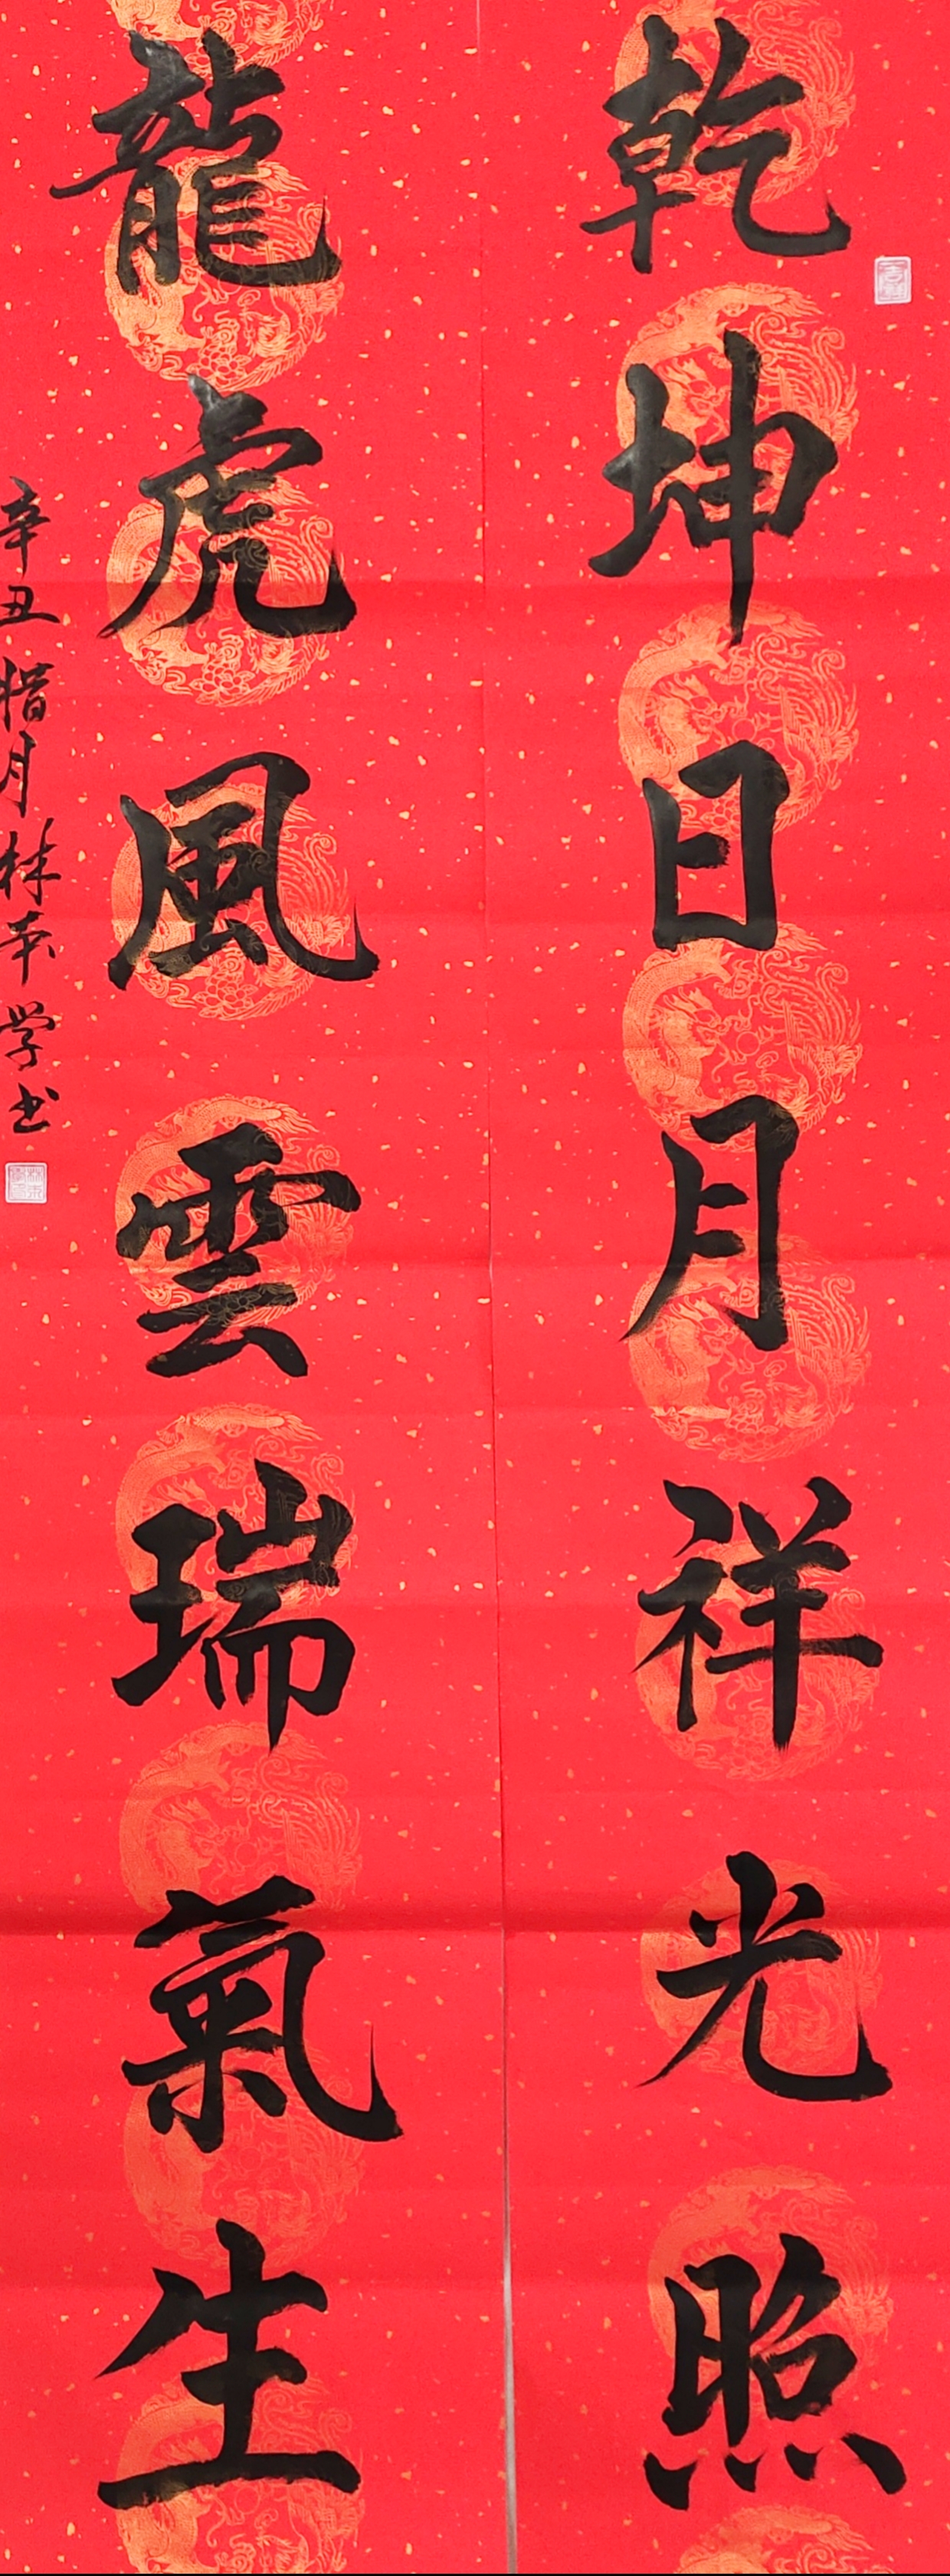 乾坤日月祥光照
龍虎風雲瑞氣生
辛丑腊月林本学书